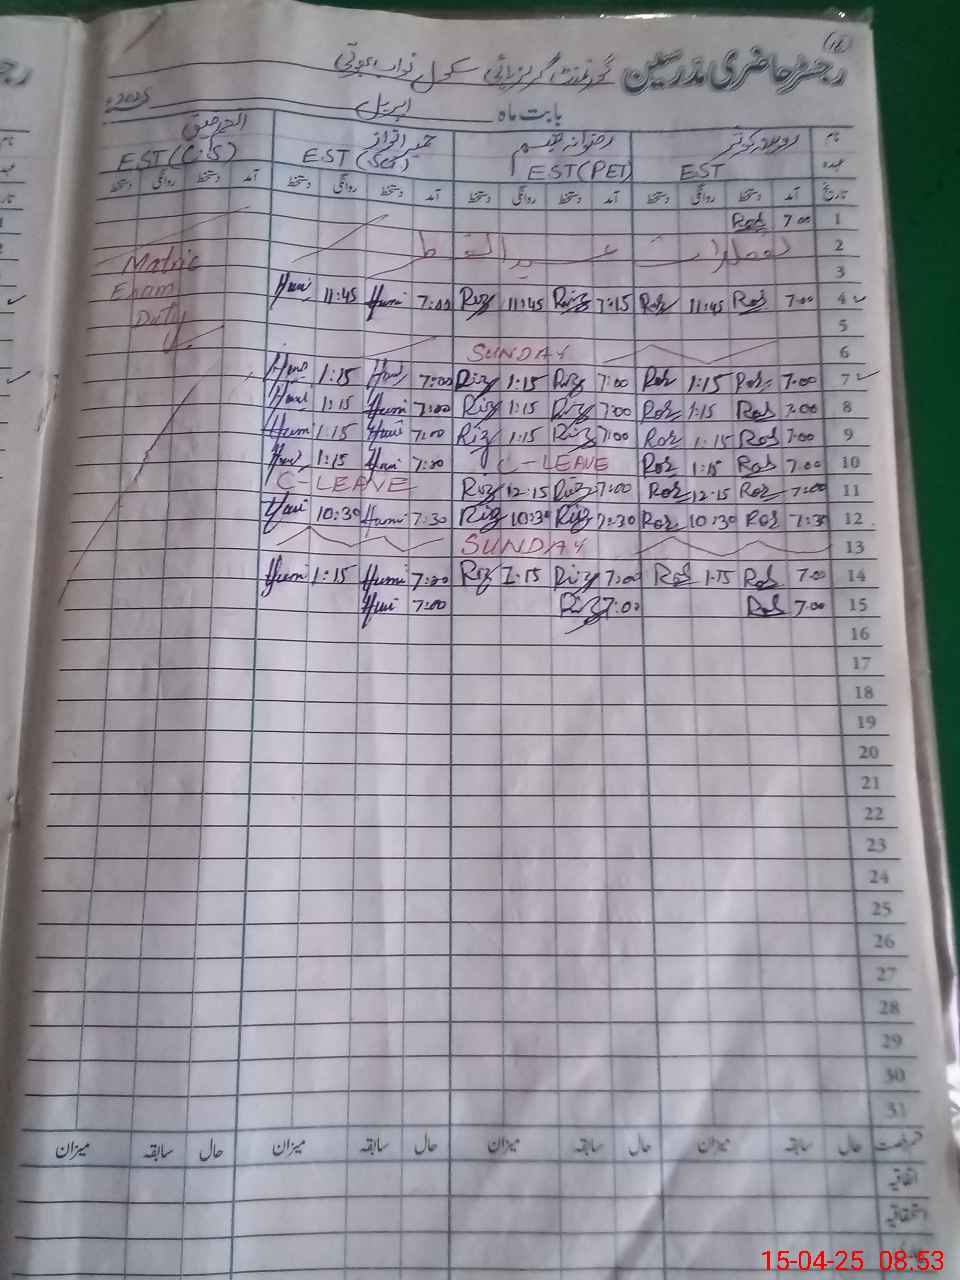 (16)
رجسٹر حاضری مدرسین گورنمنٹ گرلز ہائی سکول نواب بھوتی
بابت ماہ اپریل 2025ء
نام
عہدہ EST EST (PET) EST (Sci) EST (C.S)
تاریخ آمد دستخط روانگی دستخط آمد دستخط روانگی دستخط آمد دستخط روانگی دستخط آمد دستخط روانگی دستخط
1 7.00 Roz
2 تعطیلات عید الفطر Matric
3 Exam
4 7.00 Roz 11:45 Roz 7:15 Riz 11:45 Riz 7:00 Humi 11:45 Humi Duty
5
6 SUNDAY
7 7.00 Roz 1:15 Roz 7:00 Riz 1:15 Riz 7:00 Humi 1:15 Humi
8 7.00 Roz 1:15 Roz 7:00 Riz 1:15 Riz 7:00 Humi 1:15 Humi
9 7.00 Roz 1:15 Roz 7:00 Riz 1:15 Riz 7:00 Humi 1:15 Humi
10 7.00 Roz 1:15 Roz C-LEAVE 7:00 Humi 1:15 Humi
11 7:00 Roz 12:15 Roz 7:00 Riz 12:15 Riz C-LEAVE
12 7:30 Roz 10:30 Roz 7:30 Riz 10:30 Riz 7:30 Humi 10:30 Humi
13 SUNDAY
14 7.00 Roz 1:15 Roz 7:00 Riz 1:15 Riz 7:00 Humi 1:15 Humi
15 7.00 Roz 7:00 Riz 7:00 Humi
16
17
18
19
20
21
22
23
24
25
26
27
28
29
30
31
رخصت حال سابقہ میزان حال سابقہ میزان حال سابقہ میزان حال سابقہ میزان
اتفاقیہ
استحقاقیہ
15-04-25 08.53